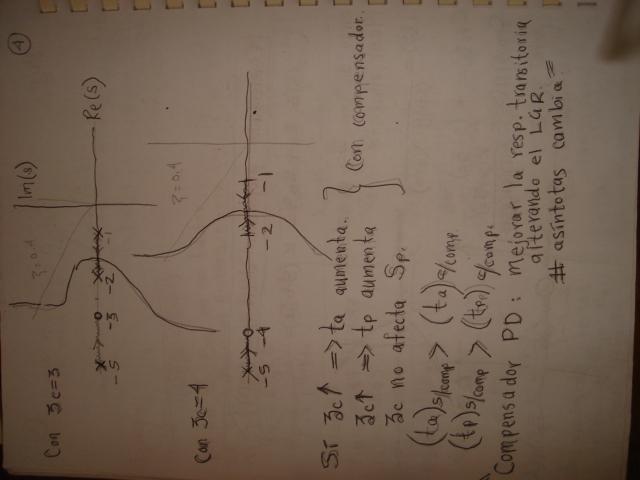 4
Con Zc=3
Im(s)
ζ=0.4
Re(s)
-5 -3 -2 -1
Con Zc=4
ζ=0.4
-5 -4 -2 -1
Si Zc↑ => ta aumenta.
Zc↑ => tp aumenta
Zc no afecta Sp.
} Con compensador.
(ta)s/comp > (ta)c/comp
(tp)s/comp > (tp)c/comp.
Compensador PD: mejorar la resp. transitoria
alterando el LGR.
# asíntotas cambia.